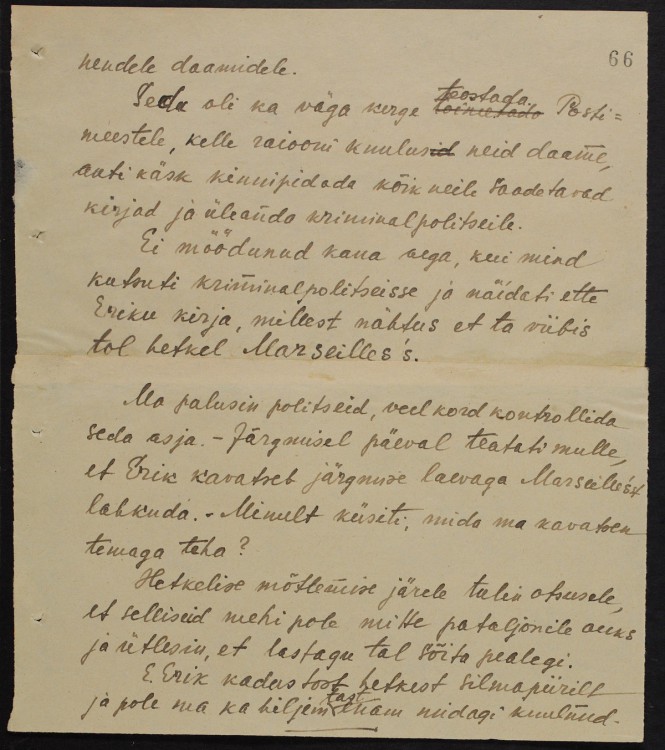 66
nendele daamidele.
Seda oli ka väga kerge teostada Posti=
meestele, kelle raiooni kuulusid neid daame,
anti käsk kinnipidada kõik neile saadetavad
kirjad ja üleanda kriminalpolitseile.
Ei möödunud kaua aega, kui mind
kutsuti kriminalpolitseisse ja näidati ette
Eriku kirja, millest nähtus et ta viibis
tol hetkel Marseilles's.
Ma palusin politseid, veel kord kontrollida
seda asja. - Järgmisel päeval teatati mulle,
et Erik kavatseb järgmise laevaga Marseille'st
lahkuda. - Minult küsiti, mida ma kavatsen
temaga teha?
Hetkelise mõtlemise järele tulin otsusele,
et selliseid mehi pole mitte pataljonile auks
ja ütlesin, et lastagu tal sõita pealegi.
E. Erik kadus sest hetkest silmapiirilt
ja pole ma ka hiljem tast enam midagi kuulnud.